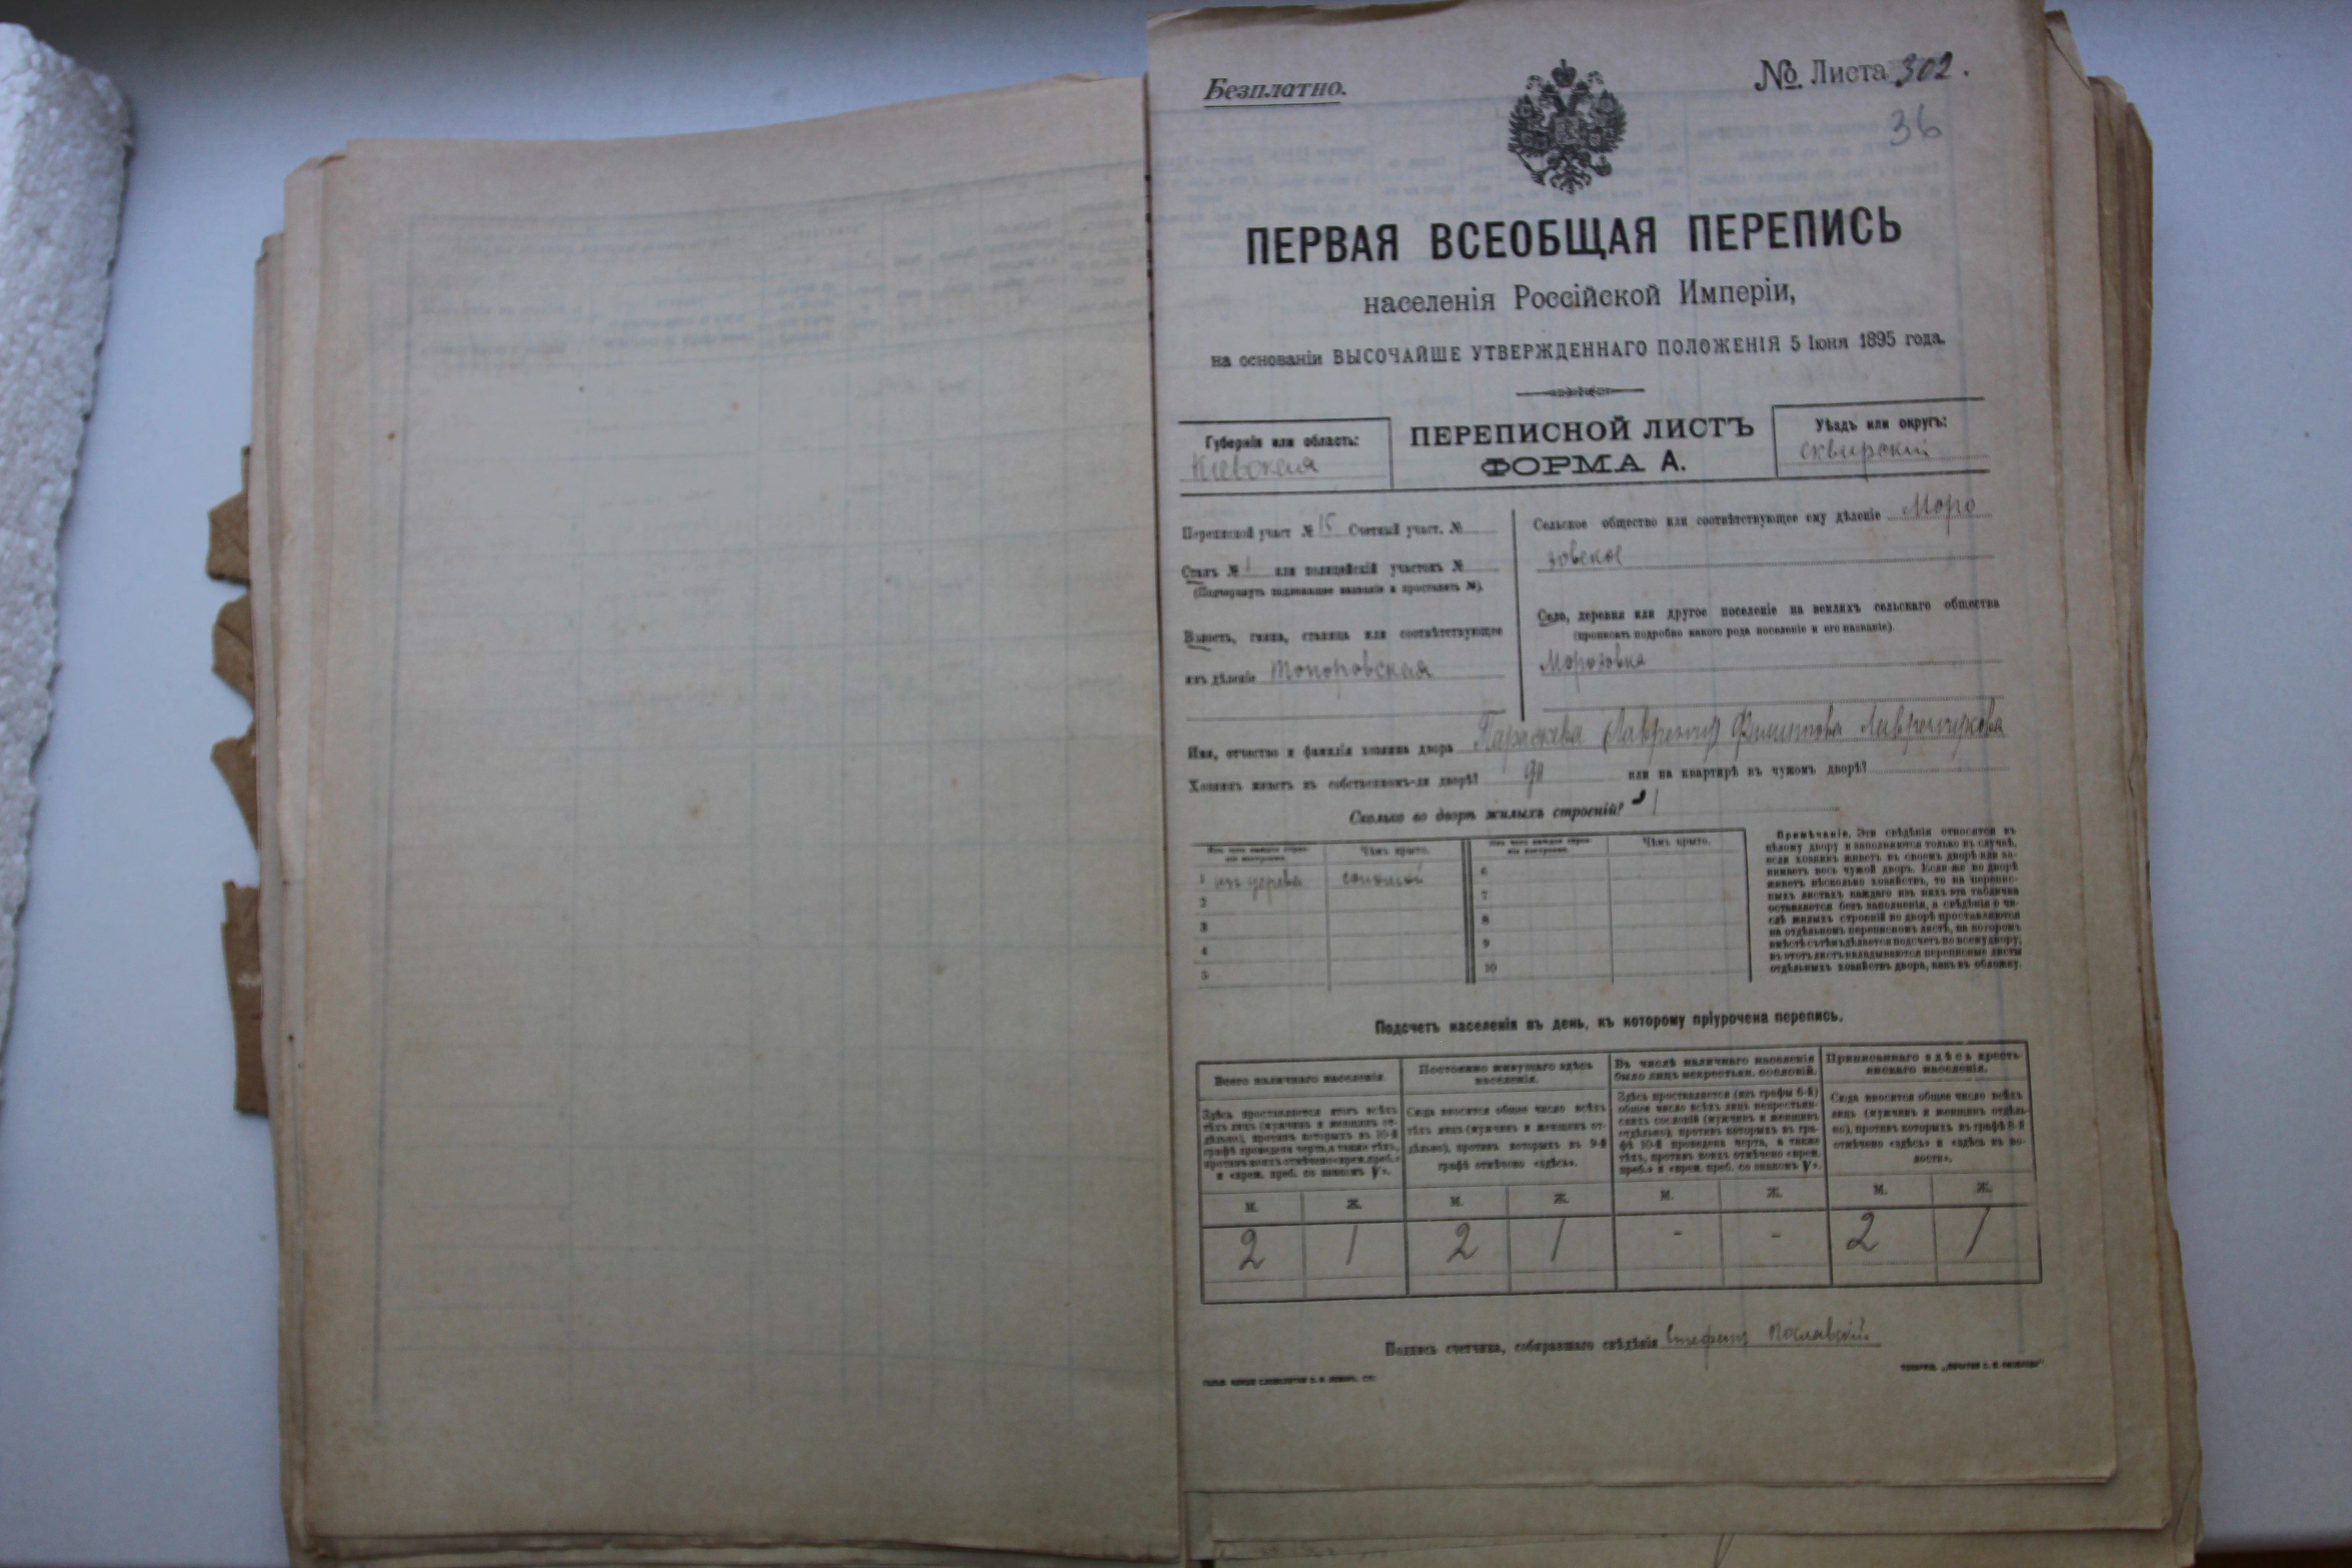 Безплатно.
№ Листа 302.
36
ПЕРВАЯ ВСЕОБЩАЯ ПЕРЕПИСЬ
населенія Россійской Имперіи,
на основаніи ВЫСОЧАЙШЕ УТВЕРЖДЕННАГО ПОЛОЖЕНІЯ 5 Іюня 1895 года.
Губернія или область:
Кіевская
ПЕРЕПИСНОЙ ЛИСТЪ
ФОРМА А.
Уѣздъ или округъ:
Сквирскій
Переписной участ № 15 Счетный участ. №
Станъ № 1 или полицейскій участокъ №
(Подчеркнуть надлежащее названіе и проставить №).
Волость, гмина, станица или соотвѣтствующее
ихъ дѣленіе Топоровская
Сельское общество или соотвѣтствующее ему дѣленіе Моро
зовское
Село, деревня или другое поселеніе на земляхъ сельскаго общества
(прописать подробно какого рода поселеніе и его названіе).
Морозовка
Имя, отчество и фамилія хозяина двора Параскева
Хозяинъ живетъ въ собственномъ-ли дворѣ? да или на квартирѣ въ чужомъ дворѣ?
Сколько во дворѣ жилыхъ строеній? 1
Изъ чего каждое строе-
ніе построено. Чѣмъ крыто. Изъ чего каждое строе-
ніе построено. Чѣмъ крыто.
1 изъ дерева соломой 6
2 7
3 8
4 9
5 10
Примѣчаніе. Эти свѣдѣнія относятся къ
цѣлому двору и заполняются только въ случаѣ,
если хозяинъ живетъ въ своемъ дворѣ или за-
нимаетъ весь чужой дворъ. Если-же во дворѣ
живетъ нѣсколько хозяйствъ, то на перепис-
ныхъ листахъ каждаго изъ нихъ эта табличка
оставляется безъ заполненія, а свѣдѣнія о чи-
слѣ жилыхъ строеній во дворѣ проставляются
на отдѣльномъ переписномъ листѣ, на которомъ
вмѣстѣ съ тѣмъ дѣлается подсчетъ по всему двору;
въ этотъ листъ вкладываются переписные листы
отдѣльныхъ хозяйствъ двора, какъ въ обложку.
Подсчетъ населенія въ день, къ которому пріурочена перепись.
Всего наличнаго населенія
Здѣсь проставляется итогъ всѣхъ
тѣхъ лицъ (мужчинъ и женщинъ от-
дѣльно), противъ которыхъ въ 10-й
графѣ проведена черта, а также тѣхъ,
противъ коихъ отмѣчено «врем. преб.»
и «врем. преб. со знакомъ V».
Постоянно живущаго здѣсь
населенія.
Сюда вносится общее число всѣхъ
тѣхъ лицъ (мужчинъ и женщинъ от-
дѣльно), противъ которыхъ въ 9-й
графѣ отмѣчено «здѣсь».
Въ числѣ наличнаго населенія
было лицъ некрестьян. сословій.
Здѣсь проставляется (изъ графы 6-й)
общее число всѣхъ лицъ некрестьян-
скихъ сословій (мужчинъ и женщинъ
отдѣльно), противъ которыхъ въ гра-
фѣ 10-й проведена черта, а также
тѣхъ, противъ коихъ отмѣчено «врем.
преб.» и «врем. преб. со знакомъ V».
Приписаннаго здѣсь кресть-
янскаго населенія.
Сюда вносится общее число всѣхъ
лицъ (мужчинъ и женщинъ отдѣль-
но), противъ которыхъ въ графѣ 8-й
отмѣчено «здѣсь» и «здѣсь въ во-
лости».
М. Ж. М. Ж. М. Ж. М. Ж.
2 1 2 1 - - 2 1
Подпись счетчика, собиравшаго свѣдѣнія Стефанъ